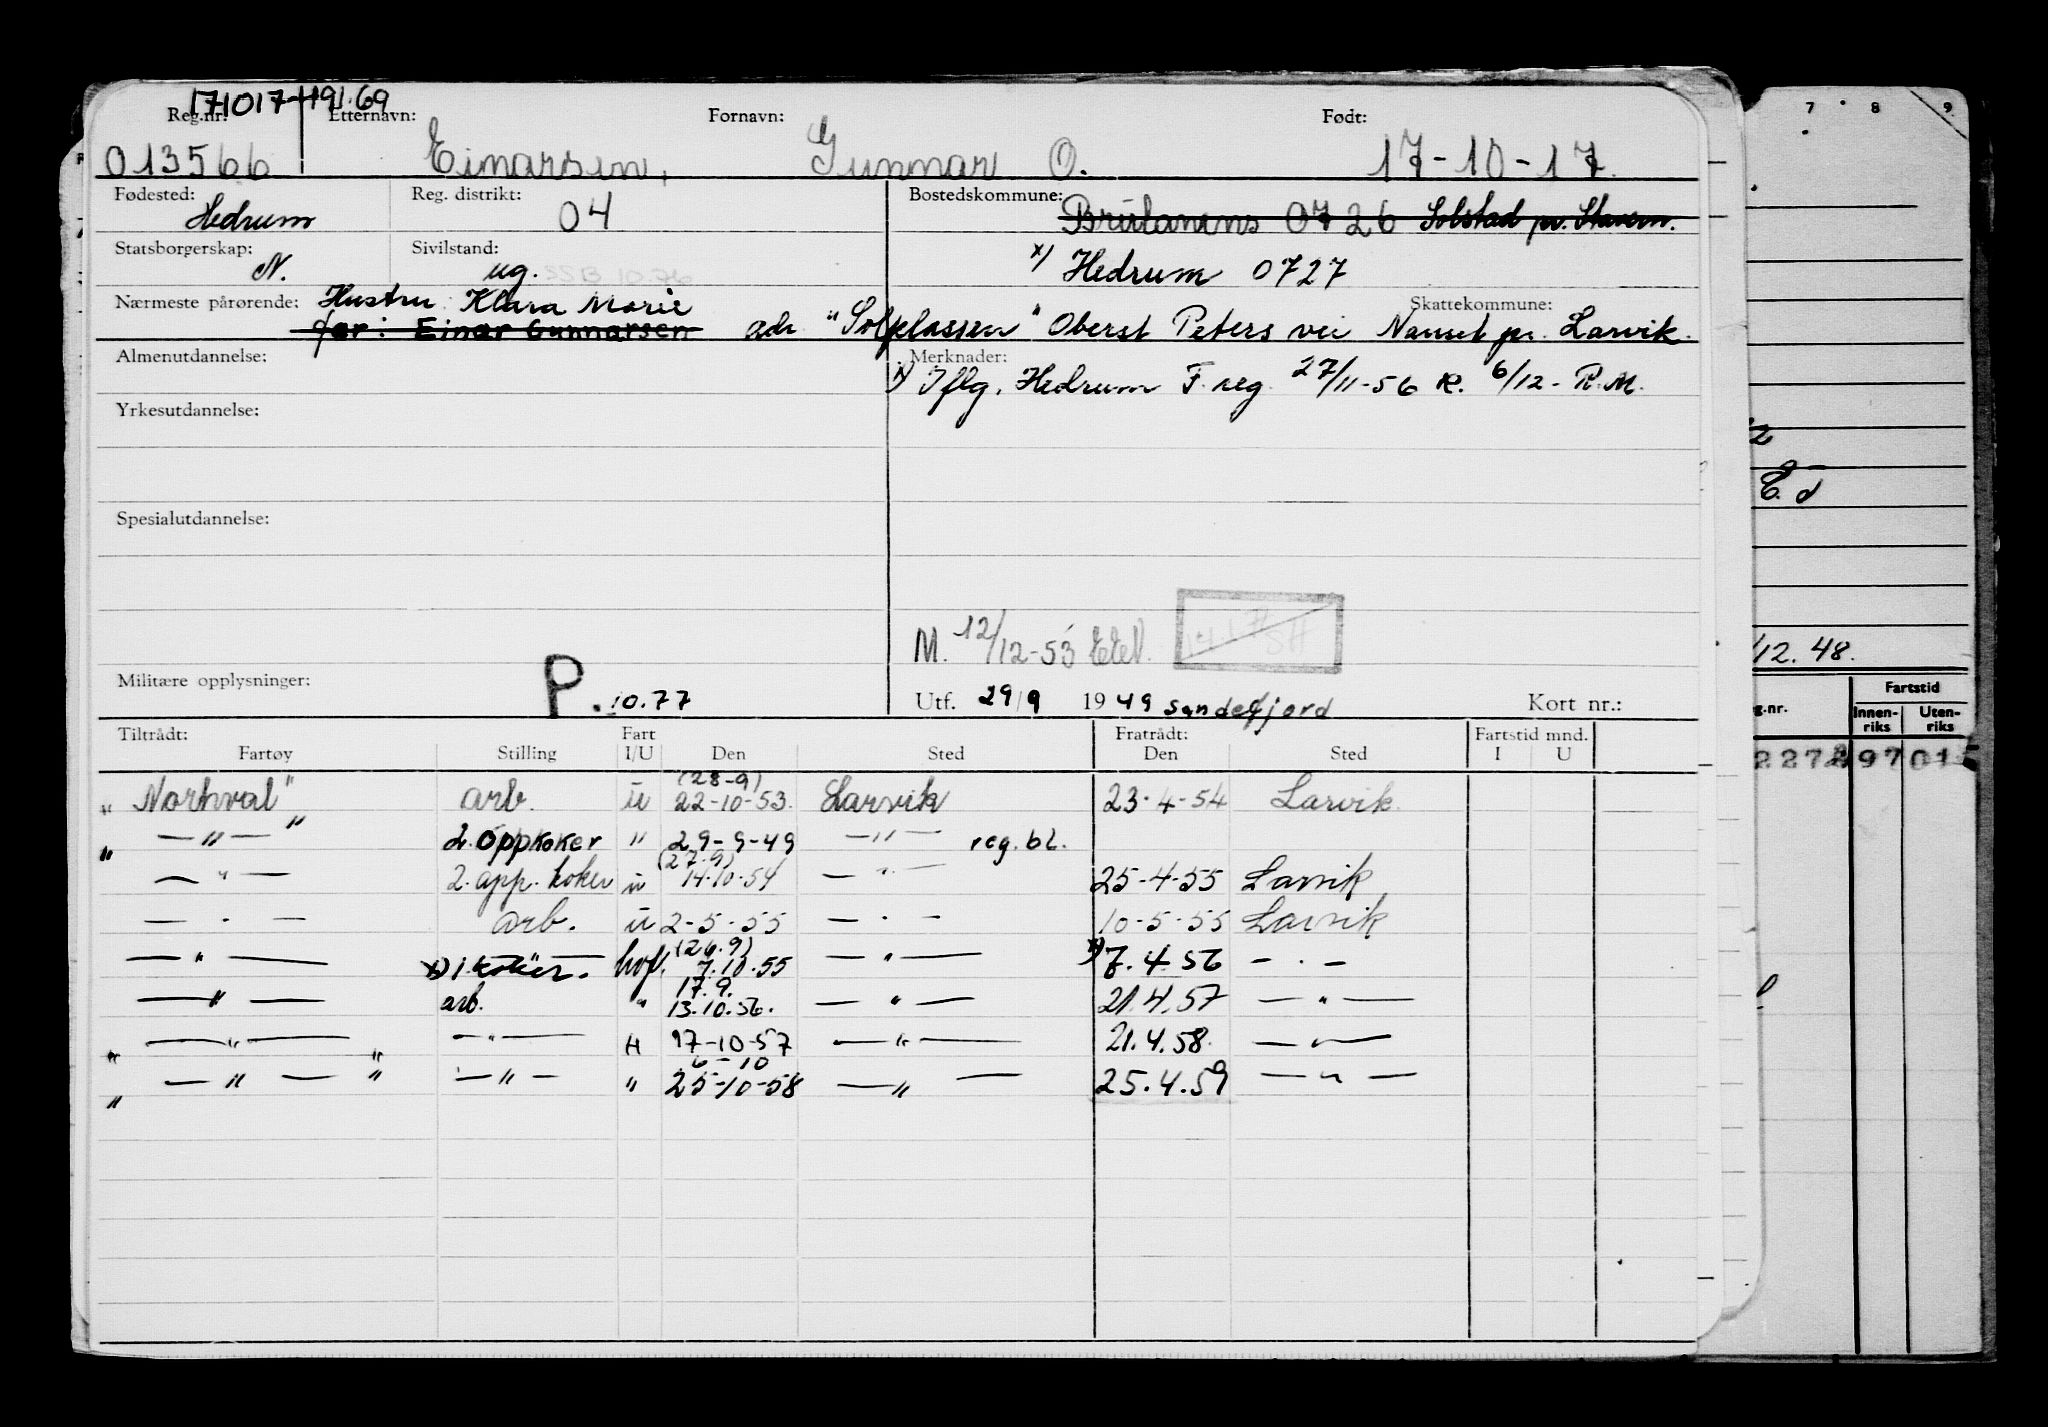 171017-491.69
Reg.nr: Etternavn: Fornavn: Født:
013566 Einarsen, Gunnar O. 17-10-17.
Fødested: Reg. distrikt: Bostedskommune:
Hedrum 04 0726 Solstad pr. Stavern.
Statsborgerskap: Sivilstand:
N. ug. SSB 10.76 x) Hedrum 0727
Nærmeste pårørende: Hustru Klara Marie Skattekommune:
far: Einar Gunnarsen adr "Solplassen" Oberst Peters vei Nanset pr. Larvik.
Almenutdannelse: Merknader:
x) Iflg. Hedrum F. reg. 27/11-56 K. 6/12- R.M.
Yrkesutdannelse:
Spesialutdannelse:
M. 12/12-53
Militære opplysninger: P. 10.77 Utf. 29/9 1949 Sandefjord Kort nr.:
Tiltrådt: Fart Fratrådt: Fartstid mnd.
Fartøy Stilling I/U Den Sted Den Sted I U
(28-9)
"Norhval" arb. u 22-10-53. Larvik 23-4-54 Larvik.
" — " — " 2. Oppkoker " 29-9-49 — " — reg. bl.
(27.9)
— " — 2. opp. koker u 14-10-54 — " — 25-4-55 Larvik
— . — arb. u 2-5-55 — . — 10-5-55 Larvik
(26.9)
— " — x) 1. koker. hvf. 7.10.55 — " — x) 7.4.56 — . —
17.9.
— " — arb. " 13.10.56. — " — 21.4.57 — " —
" — " — " — " — H 17-10-57 — " — 21.4.58. — " —
6-10
" — " — " — " — " 25-10-58 — " — 25.4.59 — " —
7 8 9
E. d
/12.48.
g.nr. Fartstid
Innen-riks Uten-riks